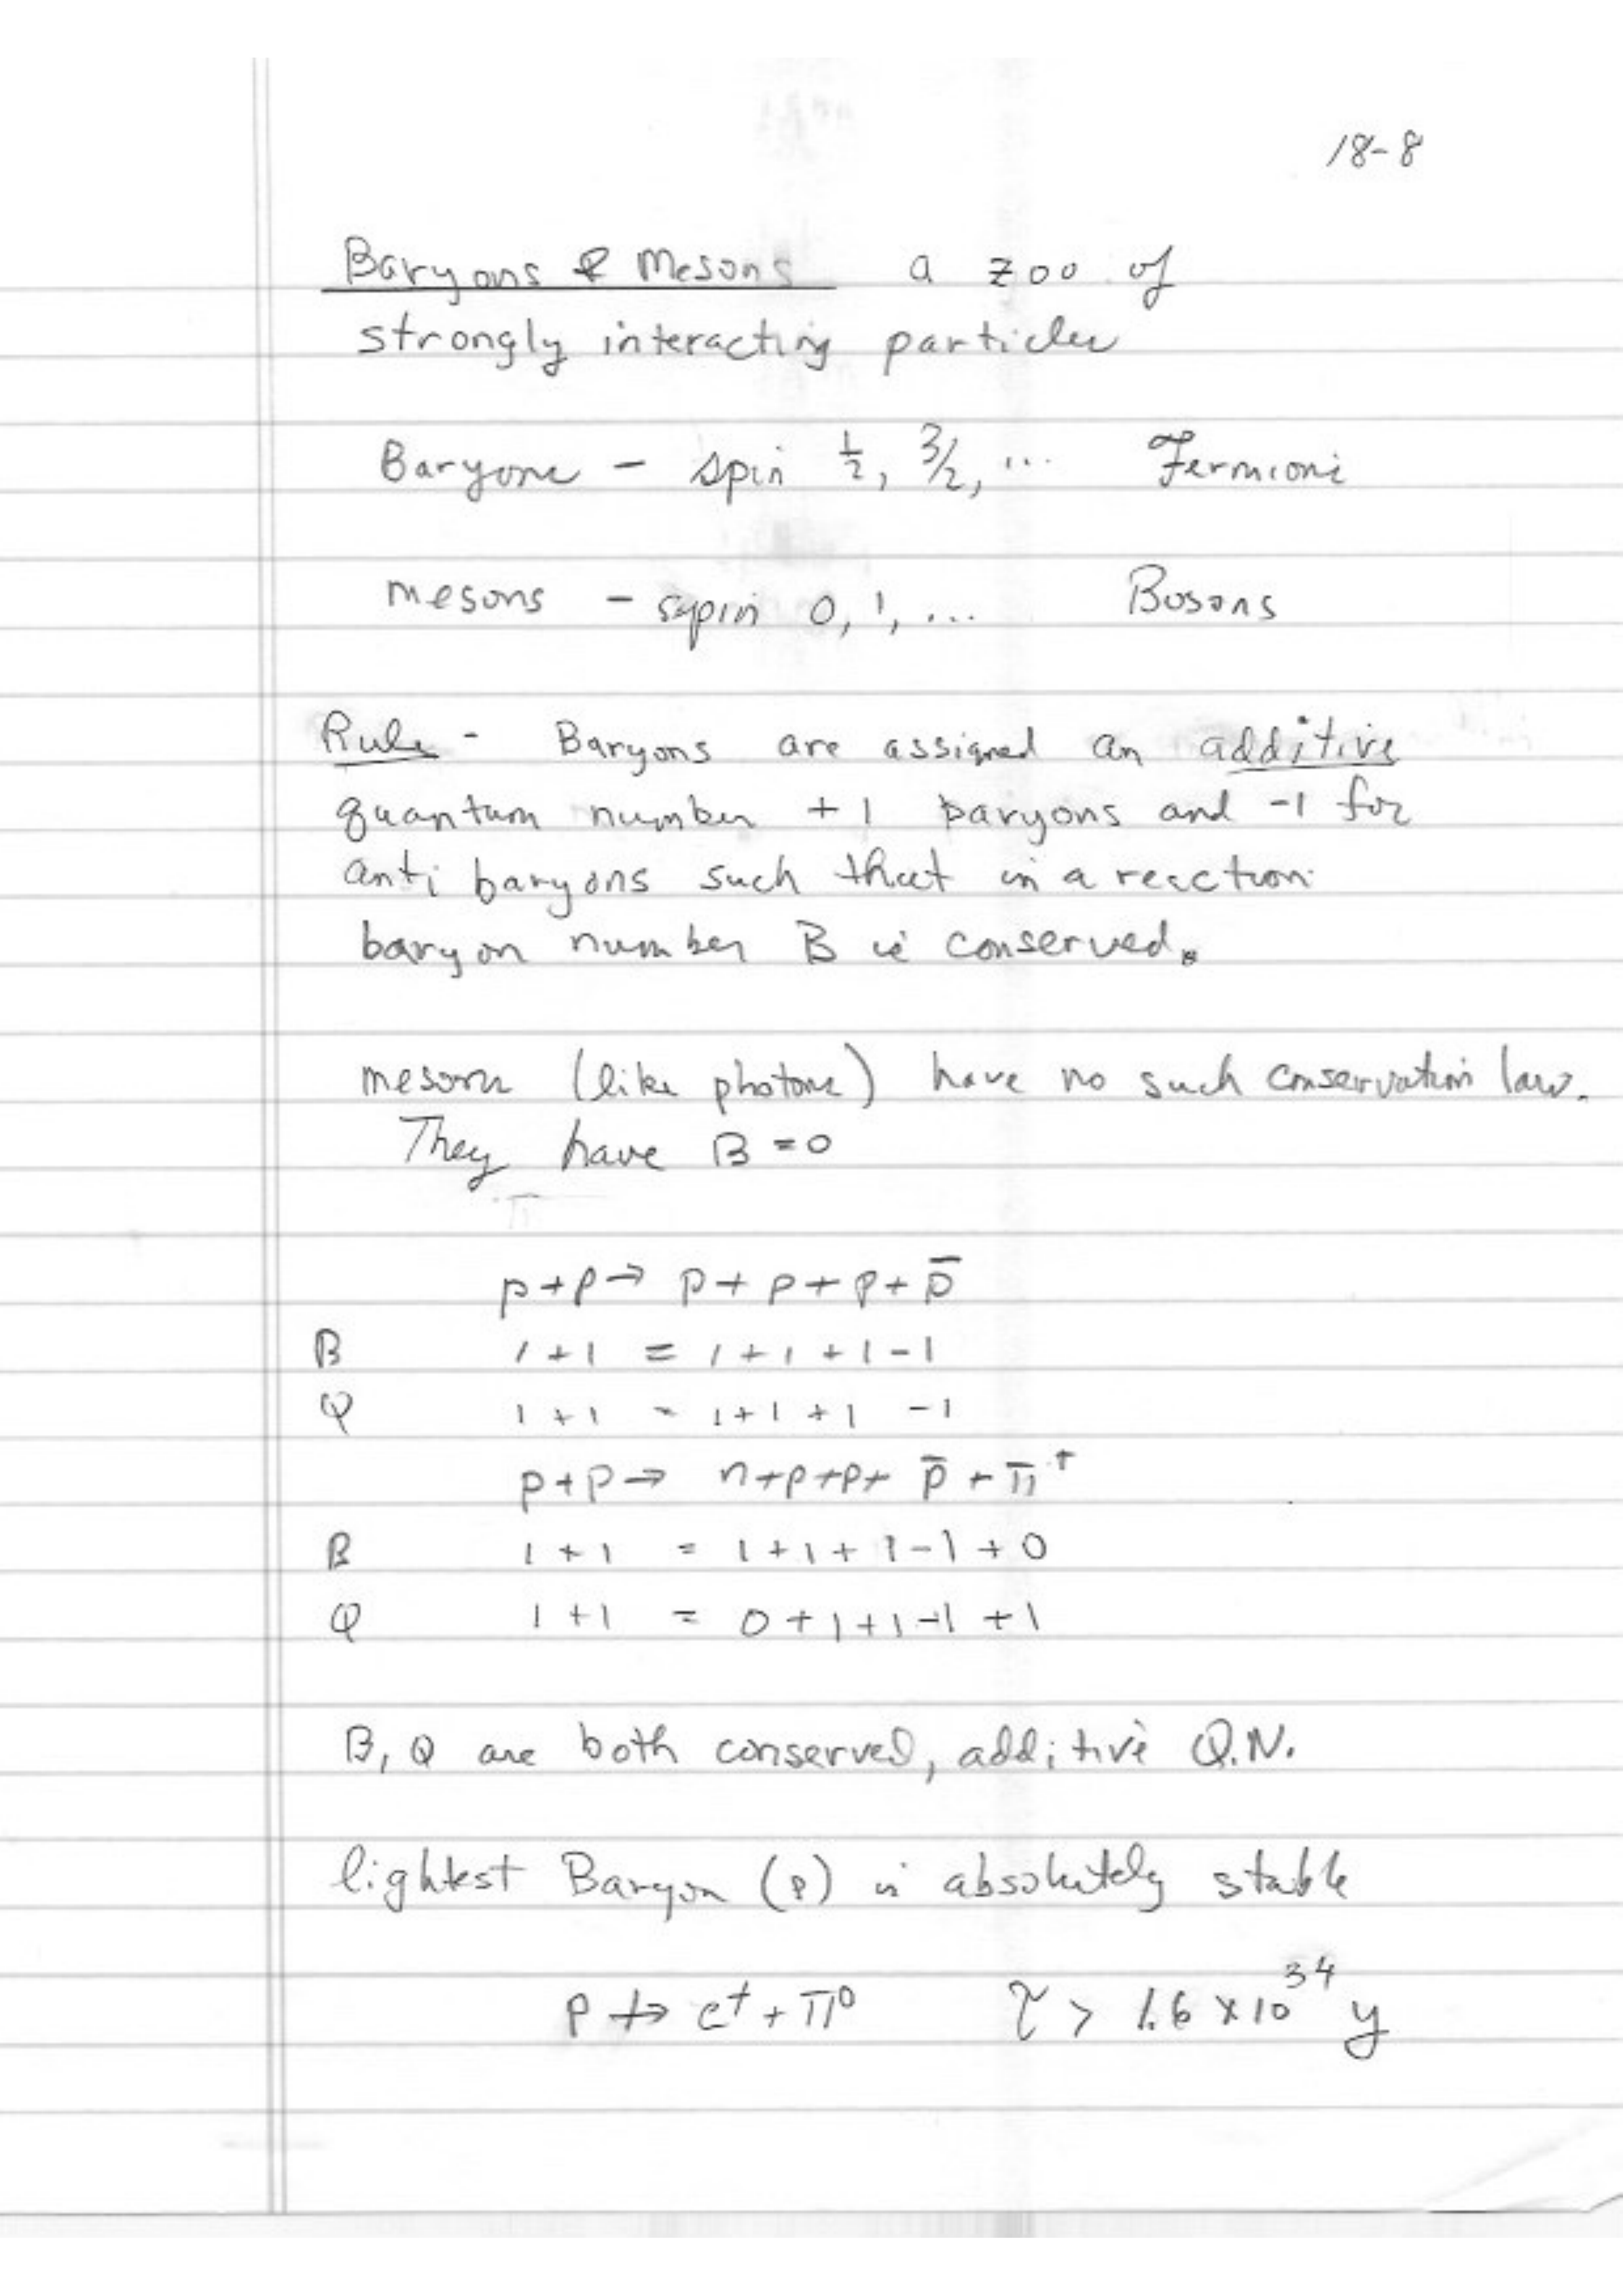 18-8
Baryons & Mesons a zoo of
strongly interacting particles
Baryons - spin 1/2, 3/2, ... Fermions
mesons - spin 0, 1, ... Bosons
Rule - Baryons are assigned an additive
quantum number +1 baryons and -1 for
anti baryons such that in a reaction
baryon number B is conserved.
mesons (like photons) have no such conservation law.
They have B = 0
p + p → p + p + p + p̄
B 1 + 1 = 1 + 1 + 1 - 1
Q 1 + 1 = 1 + 1 + 1 - 1
p + p → n + p + p + p̄ + π⁺
B 1 + 1 = 1 + 1 + 1 - 1 + 0
Q 1 + 1 = 0 + 1 + 1 - 1 + 1
B, Q are both conserved, additive Q.N.
lightest Baryon (p) is absolutely stable
p ↛ e⁺ + π⁰ τ > 1.6 × 10³⁴ y